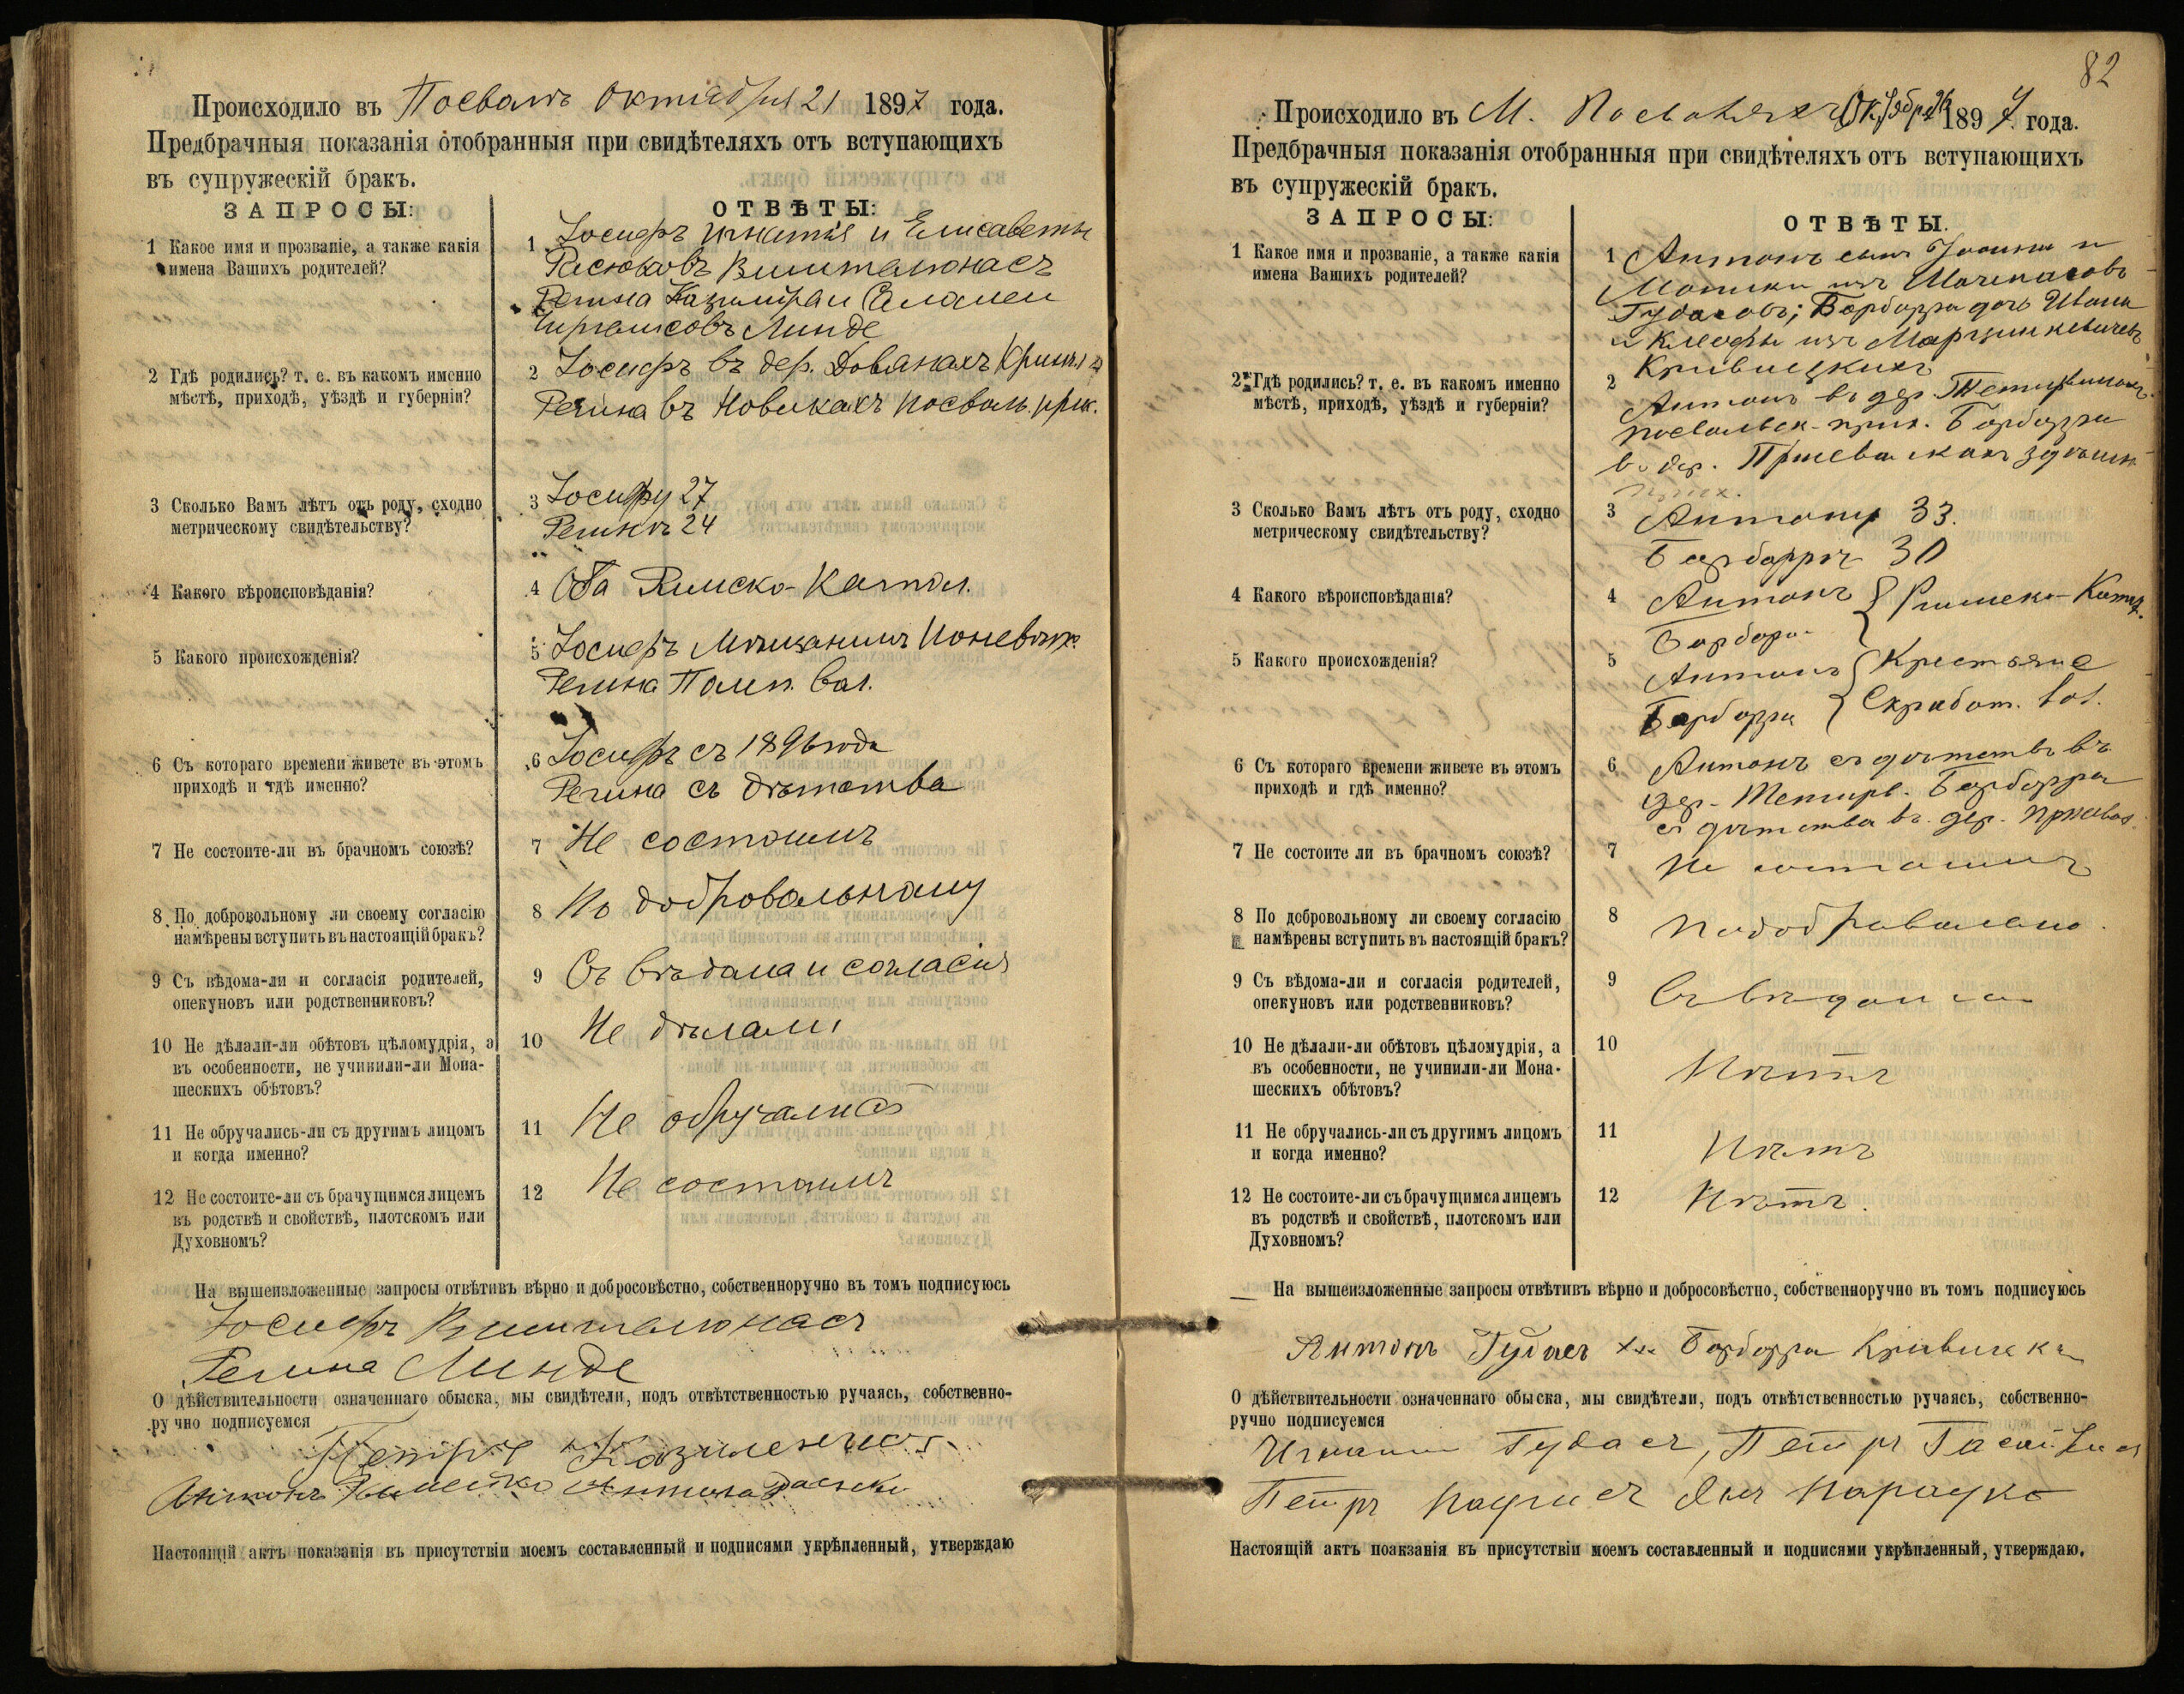 Происходило въ Посвалѣ Октября 21 1897 года.
Предбрачныя показанія отобранныя при свидѣтеляхъ отъ вступающихъ
въ супружескій бракъ.
ЗАПРОСЫ:
ОТВѢТЫ:
1 Какое имя и прозваніе, а также какія
имена Вашихъ родителей?
1 Іосифъ Игнатія и Елисаветы
Виштелюнасъ
Регина Казиміра и
Линде
2 Гдѣ родились? т. е. въ какомъ именно
мѣстѣ, приходѣ, уѣздѣ и губерніи?
2 Іосифъ въ дер. Дованахъ
Регина въ Новикахъ Посволь. прих.
3 Сколько Вамъ лѣтъ отъ роду, сходно
метрическому свидѣтельству?
3 Іосифу 27
Регинѣ 24
4 Какого вѣроисповѣданія?
4 Оба Римско-Катол.
5 Какого происхожденія?
5 Іосифъ Мѣщанинъ Поневѣж.
Регина Помп. вол.
6 Съ котораго времени живете въ этомъ
приходѣ и гдѣ именно?
6 Іосифъ съ 1896 года
Регина съ дѣтства
7 Не состоите-ли въ брачномъ союзѣ?
7 Не состоимъ
8 По добровольному ли своему согласію
намѣрены вступить въ настоящій бракъ?
8 По добровольному
9 Съ вѣдома-ли и согласія родителей,
опекуновъ или родственниковъ?
9 Съ вѣдома и согласія
10 Не дѣлали-ли обѣтовъ цѣломудрія, а
въ особенности, не учинили-ли Мона-
шескихъ обѣтовъ?
10 Не дѣлали
11 Не обручались-ли съ другимъ лицомъ
и когда именно?
11 Не обручались
12 Не состоите-ли съ брачущимся лицемъ
въ родствѣ и свойствѣ, плотскомъ или
Духовномъ?
12 Не состоимъ
На вышеизложенные запросы отвѣтивъ вѣрно и добросовѣстно, собственноручно въ томъ подписуюсь
Іосифъ Виштелюнасъ
Регина Линде
О дѣйствительности означеннаго обыска, мы свидѣтели, подъ отвѣтственностью ручаясь, собственно-
ручно подписуемся
Петръ
Антонъ
Настоящій актъ показанія въ присутствіи моемъ составленный и подписями укрѣпленный, утверждаю
82
Происходило въ М. Посволяхъ Октября 26 1897 года.
Предбрачныя показанія отобранныя при свидѣтеляхъ отъ вступающихъ
въ супружескій бракъ.
ЗАПРОСЫ:
ОТВѢТЫ.
1 Какое имя и прозваніе, а также какія
имена Вашихъ родителей?
1 Антонъ сынъ и
изъ
Гудасовъ; Барбара дочь Ивана
и Клеофы изъ Марцинкевичевъ
Кривицкихъ
2 Гдѣ родились? т. е. въ какомъ именно
мѣстѣ, приходѣ, уѣздѣ и губерніи?
2 Антонъ въ дер.
Посвольск. прих. Барбара
въ дер. здѣшн.
прих.
3 Сколько Вамъ лѣтъ отъ роду, сходно
метрическому свидѣтельству?
3 Антону 33.
Барбарѣ 30
4 Какого вѣроисповѣданія?
4 Антонъ Римско-Катол.
Барбара
5 Какого происхожденія?
5 Антонъ Крестьяне
Барбара Скработ. вол.
6 Съ котораго времени живете въ этомъ
приходѣ и гдѣ именно?
6 Антонъ съ дѣтства въ
дер. Барбара
съ дѣтства въ дер.
7 Не состоите ли въ брачномъ союзѣ?
7 Не состоимъ
8 По добровольному ли своему согласію
намѣрены вступить въ настоящій бракъ?
8 По добровольно.
9 Съ вѣдома-ли и согласія родителей,
опекуновъ или родственниковъ?
9 Съ вѣдома
10 Не дѣлали-ли обѣтовъ цѣломудрія, а
въ особенности, не учинили-ли Мона-
шескихъ обѣтовъ?
10 Нѣтъ
11 Не обручались-ли съ другимъ лицомъ
и когда именно?
11 Нѣтъ
12 Не состоите-ли съ брачущимся лицемъ
въ родствѣ и свойствѣ, плотскомъ или
Духовномъ?
12 Нѣтъ.
На вышеизложенные запросы отвѣтивъ вѣрно и добросовѣстно, собственноручно въ томъ подписуюсь
Антонъ Гудасъ Барбара Кривицка
О дѣйствительности означеннаго обыска, мы свидѣтели, подъ отвѣтственностью ручаясь, собственно-
ручно подписуемся
Гудасъ, Петръ
Петръ
Настоящій актъ поакзанія въ присутствіи моемъ составленный и подписями укрѣпленный, утверждаю.